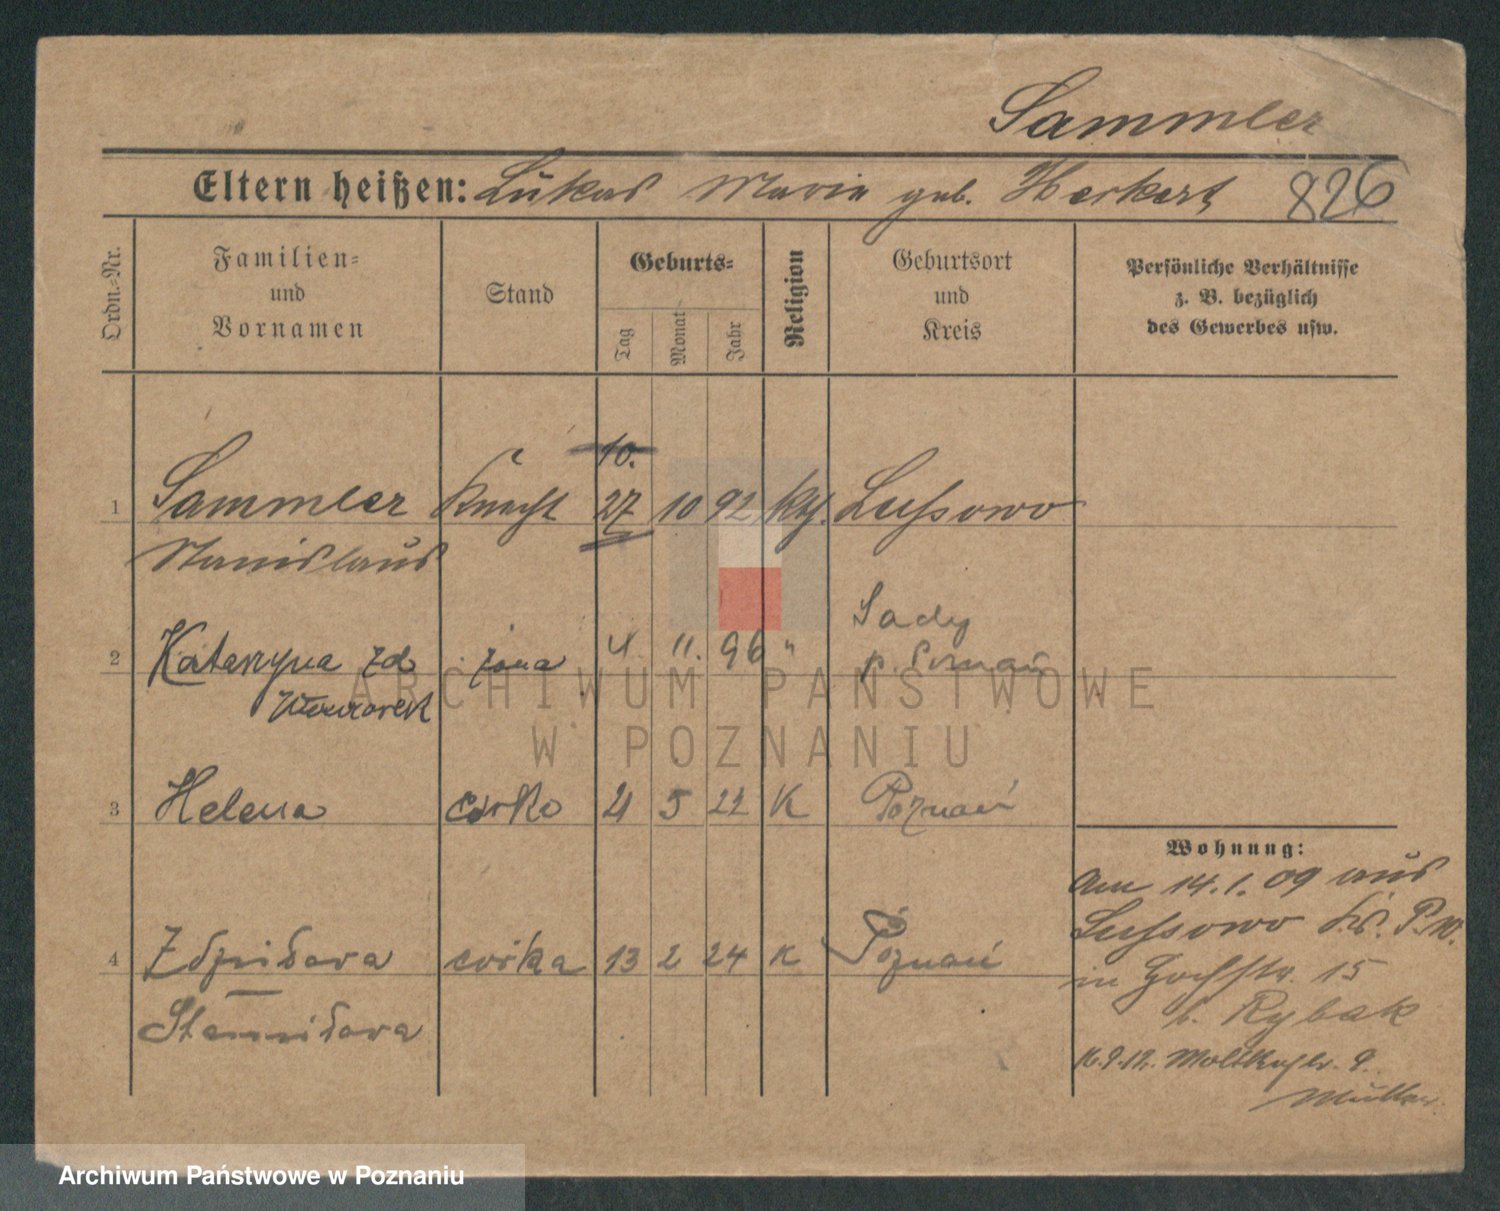 Sammler
Eltern heißen: Lukas Marie geb. Herkert
826
Ordn.-Nr.
Familien-
und
Vornamen
Stand
Geburts-
Tag
Monat
Jahr
Religion
Geburtsort
und
Kreis
Persönliche Verhältnisse
z. B. bezüglich
des Gewerbes usw.
10.
1 Sammler Knecht 27 10 92 kth. Lussowo
Stanislaus
Sady
2 Katarzyna zd żona 4. 11. 96 " p. Poznań
3 Helena córka 21 5 22 K Poznań
Wohnung:
Am 14.1.09 aus
Lussowo Kr. P.W.
4 córka 13 2 24 K Poznań
in Hochstr. 15
Stanisława
b. Rybak
16.9.12. Moltkestr. 9.
Müller
ARCHIWUM PAŃSTWOWE
W POZNANIU
Archiwum Państwowe w Poznaniu